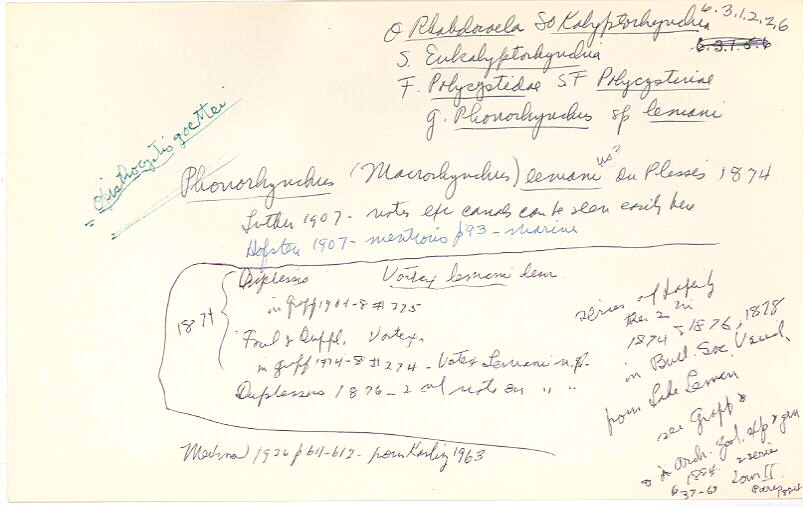 O Rhabdocoela SO Kalyptorhynchia
6.3.1.2.2.6
6.3.1.5.6
S. Eukalyptorhynchia
F. Polycystidae SF Polycystinae
g. Phonorhynchus sp lemani
= Opisthocystis goettei
Phonorhynchus (Macrorhynchus) lemani us? Du Plessis, 1874
Luther 1907 - notes exc canals can be seen easily here
Hofsten 1907 - mentions p93 - marine
1874
Duplessis Vortex lemani
in Graff 1904-8 # 275
Forel & Duppl. Vortex,
in Graff 1904-8 # 274 - Vortex Lemani n.sp.
Duplessis 1876 - 2 note on " "
series of
these 2 in
1874 & 1876, 1878
in Bull. Soc. Vaud.
from Lake Leman
see Graff
Arch. Zool. exp & gen
1884 2 serie
37-6 Tom II
Paris 1884
Medina 1926 p 611-612 - from Karling 1963